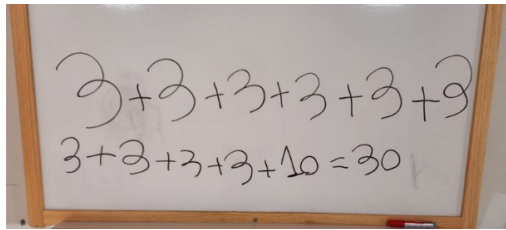 3+3+3+3+3+3
3+3+3+3+10=30